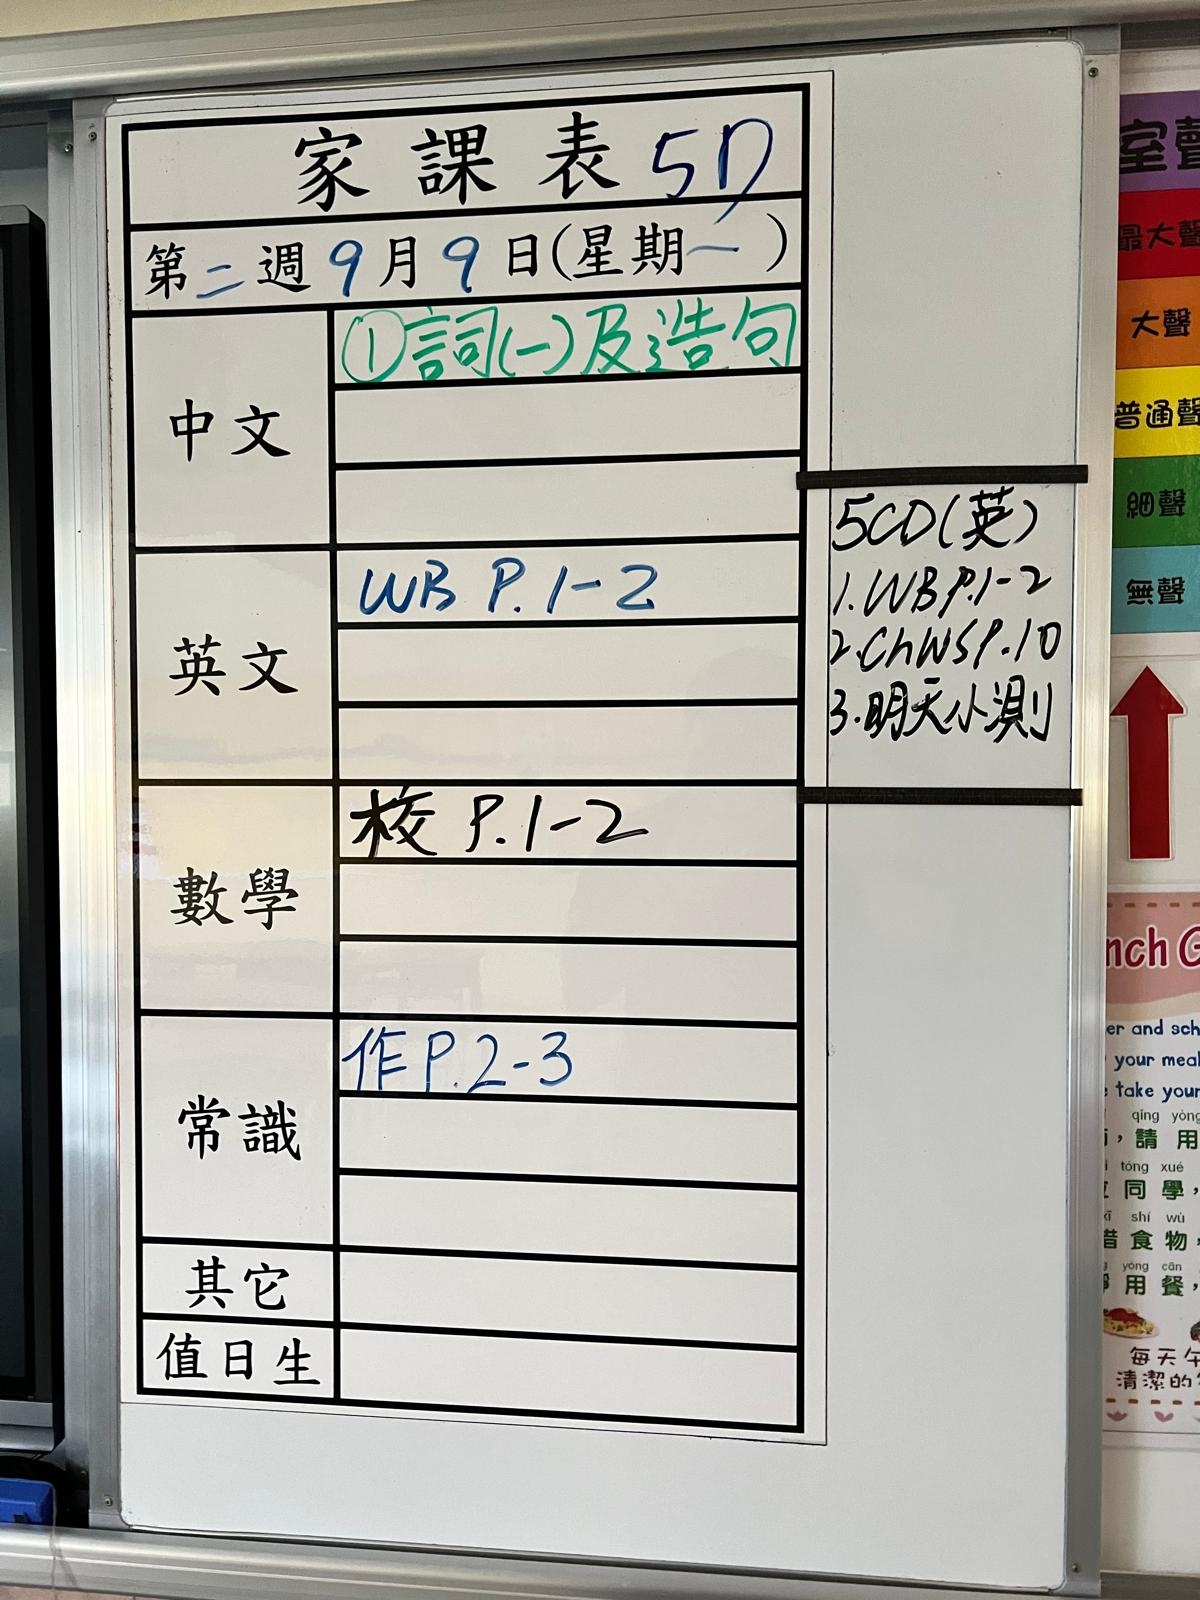 家課表 5D
第二週9月9日(星期一)
中文
①詞(一)及造句
英文
WB P.1-2
數學
校 P.1-2
常識
作P.2-3
其它
值日生
5CD(英)
1.WB P.1-2
2.ChWS P.10
3.明天小測
室聲
最大聲
大聲
普通聲
細聲
無聲
nch G
er and sch
your meal
take your
qǐng yòng
，請用
tóng xué
同學，
shí wù
惜食物
yòng cān
用餐，
每天午
清潔的